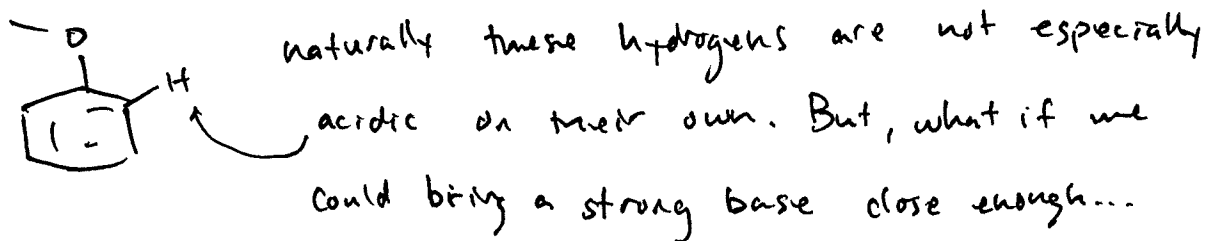 O
naturally these hydrogens are not especially
H
acidic on their own. But, what if we
could bring a strong base close enough...